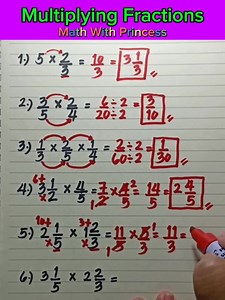 Multiplying Fractions
Math With Princess
1.) 5 × 2/3 = 10/3 = 3 1/3
2.) 3/5 × 2/4 = 6÷2/20÷2 = 3/10
3.) 1/3 × 2/5 × 1/4 = 2÷2/60÷2 = 1/30
4.) 3 1/2 × 4/5 = 7/2 × 4/5 = 14/5 = 2 4/5
5.) 2 1/5 × 1 2/3 = 11/5 × 5/3 = 11/3 =
6.) 3 1/5 × 2 2/3 =